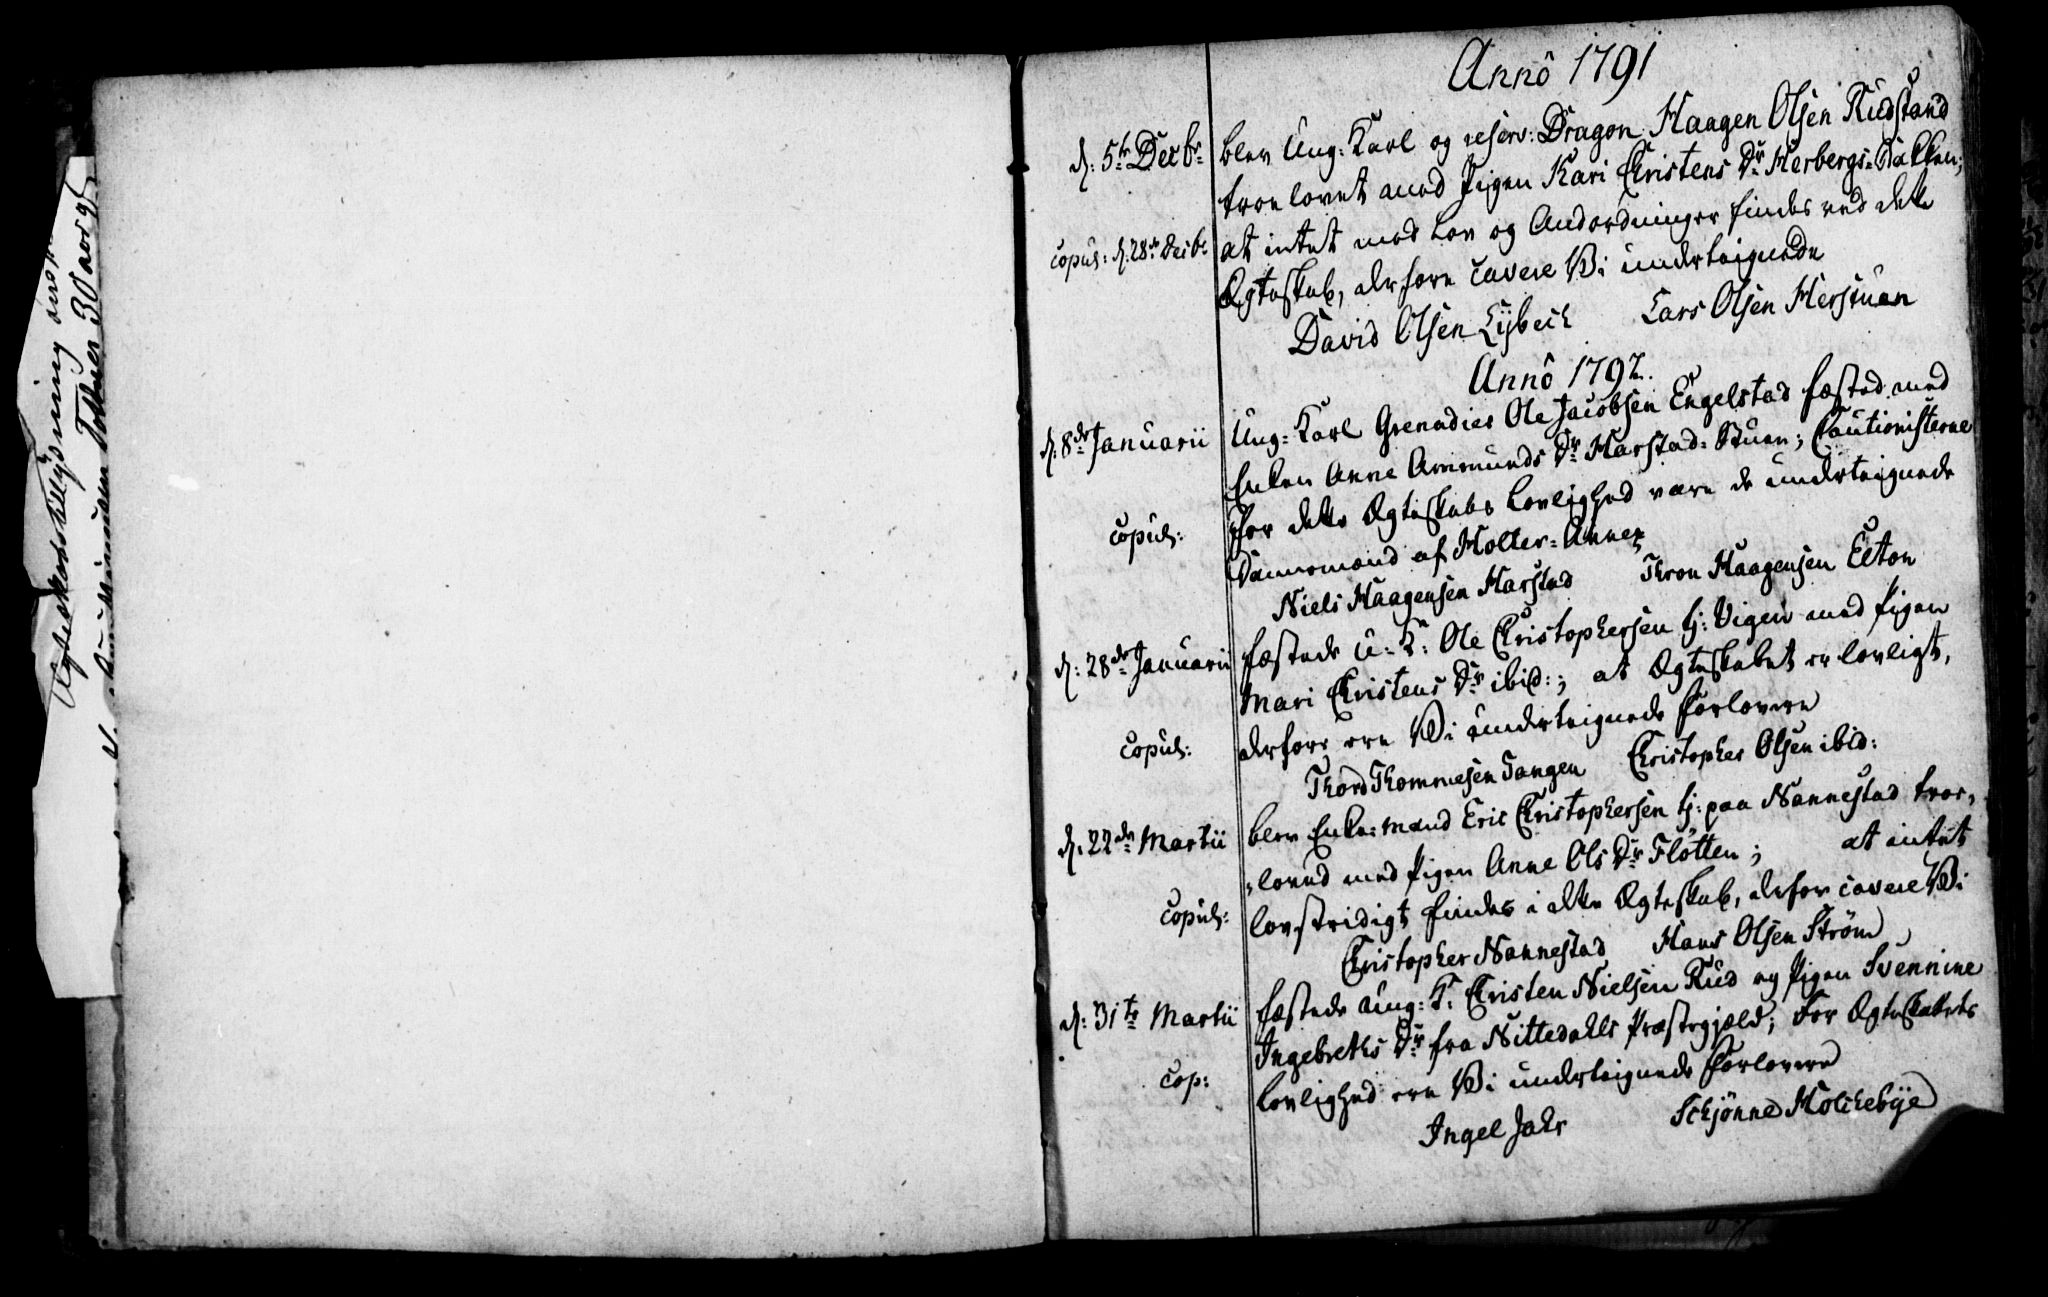 Ægteskabstillysning
Tollner 30 aar gl
Annô 1791
d: 5te Decbr
blev Ung: Karl og reserv: Dragon Haagen Olsen Rudstand
troelovet med Pigen Kari Christens Dr Herbergs=Bakken;
copul: d: 28de Decbr
at intet mod Lov og Andordninger findes ved dette
Ægteskab, derfore cavere Vi underteignede
David Olsen Lybeck Lars Olsen Herstuen
Annô 1792.
d: 8de Januarii
Ung=Karl Grenadier Ole Jacobsen Engelstad fæsted med
Enken Anne Ammunds Dr Harstad=Stuen; Cautionisterne
copul:
for dette Ægteskabs Lovlighed være de underteignede
Dannemænd af Holter=Annex
Niels Haagensen Harstad Thron Haagensen Elton
d: 28de Januarii
fæstede U: K: Ole Christophersen tj: Vigen med Pigen
Mari Christens Dr ibid:; at Ægteskabet er lovligt,
copul:
derfore ere Vi underteignede Forlovere
Thord Thommesen Tangen Christopher Olsen ibid:
d: 22de Martii
blev Enke=mand Eric Christophersen tj: paa Nannestad troe,
,loved med Pigen Anne Ols Dr Fløtten; at intet
copul:
lovstridigt findes i dette Ægteskab, derfor cavere Vi
Christopher Nannestad Hans Olsen Strøm
d: 31te Martii
fæstede Ung: K: Christen Nielsen Rud og Pigen Svennine
Ingebreths Dr fra Nittedahls Præstegjæld; For Ægteskabets
cop:
Lovlighed ere Vi underteignede Forlovere
Ingel Jahr Schjønne Holckebye